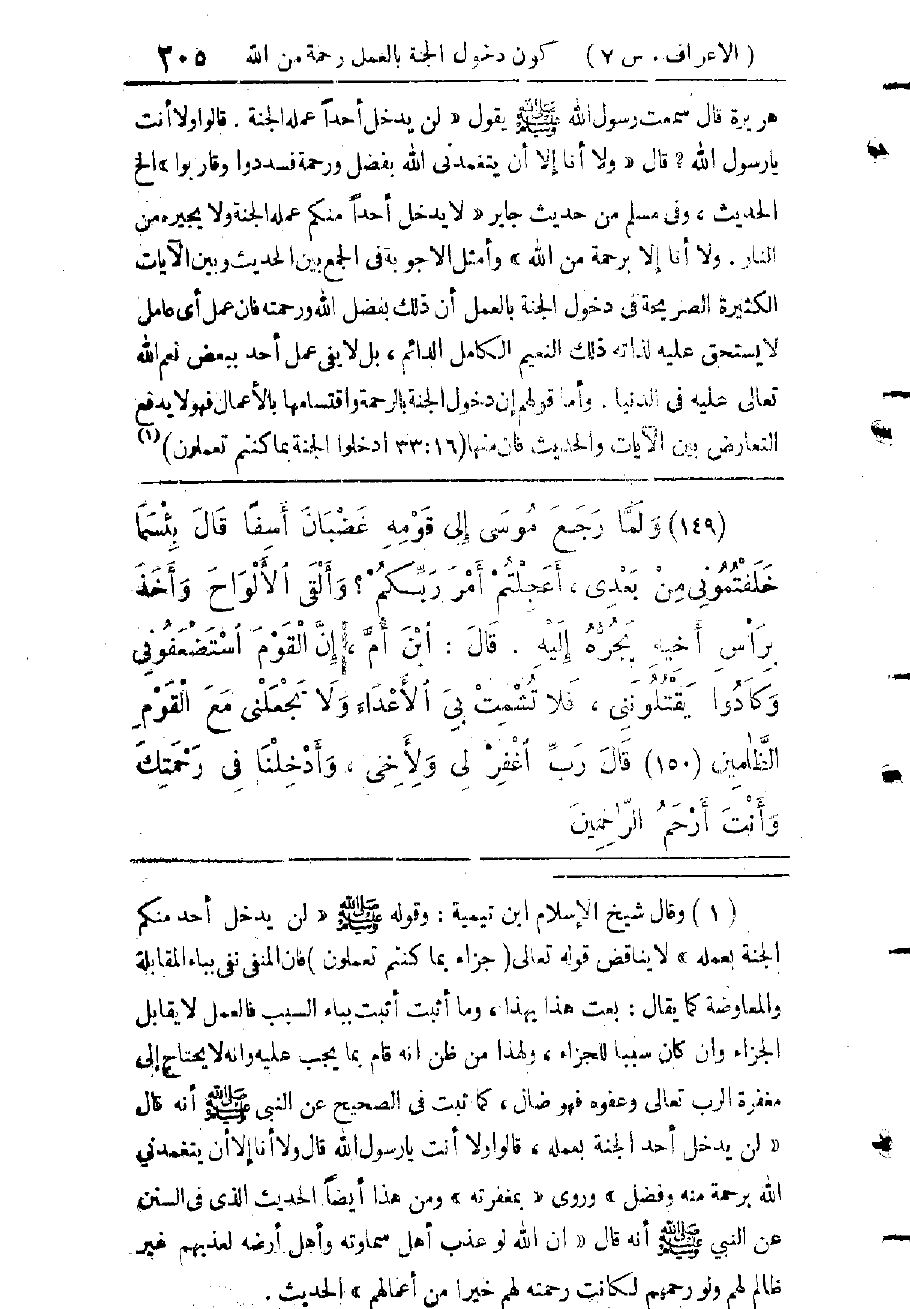 ( الاعراف . س ٧ ) كون دخول الجنة بالعمل رحمة من الله ٢٠٥
هريرة قال سمعت رسول الله ﷺ يقول « لن يدخل أحداً عمله الجنة . قالوا ولا أنت
يارسول الله ؟ قال « ولا أنا إلا أن يتغمدنى الله بفضل ورحمة فسددوا وقاربوا » الخ
الحديث ، وفى مسلم من حديث جابر « لا يدخل أحداً منكم عمله الجنة ولا يجيره من
النار . ولا أنا إلا برحمة من الله » وأمثل الاجوبة فى الجمع بين الحديث وبين الآيات
الكثيرة الصريحة فى دخول الجنة بالعمل أن ذلك بفضل الله ورحمته فان عمل أى عامل
لا يستحق عليه لذاته ذلك النعيم الكامل الدائم ، بل لا يفى عمل أحد ببعض نعم الله
تعالى عليه فى الدنيا . وأما قولهم إن دخول الجنة بالرحمة واقتسامها بالأعمال فهو لا يدفع
التعارض بين الآيات والحديث فان منها (١٦:٣٣ ادخلوا الجنة بما كنتم تعملون) (١)
(١٤٩) وَلَمَّا رَجَعَ مُوسَى إِلى قَوْمِهِ غَضْبَانَ أَسِفًا قَالَ بِئْسَمَا
خَلَفْتُمُونِي مِنْ بَعْدِى ، أَعَجِلْتُمْ أَمْرَ رَبِّكُمْ ؟ وَأَلْقَى الْأَلْوَاحَ وَأَخَذَ
بِرَأْسِ أَخِيهِ يَجُرُّهُ إِلَيْهِ . قَالَ : ابْنَ أُمَّ ، إِنَّ الْقَوْمَ اسْتَضْعَفُونِي
وَكَادُوا يَقْتُلُونَنِي ، فَلا تُشْمِتْ بِيَ الْأَعْدَاءَ وَلَا تَجْعَلْنِى مَعَ الْقَوْمِ
الظَّالِمِين (١٥٠) قَالَ رَبِّ اغْفِرْ لِى وَلِأَخِى ، وَأَدْخِلْنَا فِى رَحْمَتِكَ
وَأَنْتَ أَرْحَمُ الرَّاحِمِينَ
( ١ ) وقال شيخ الإسلام ابن تيمية : وقوله ﷺ « لن يدخل أحد منكم
الجنة بعمله » لا يناقض قوله تعالى ( جزاء بما كنتم تعملون ) فان المنفى نفى بباء المقابلة
والمعاوضة كما يقال : بعت هذا بهذا ، وما أثبت أثبت بباء السبب فالعمل لا يقابل
الجزاء وان كان سببا للجزاء ، ولهذا من ظن انه قام بما يجب عليه وانه لا يحتاج إلى
مغفرة الرب تعالى وعفوه فهو ضال ، كما ثبت فى الصحيح عن النبى ﷺ أنه قال
« لن يدخل أحد الجنة بعمله ، قالوا ولا أنت يارسول الله قال ولا أنا إلا أن يتغمدني
الله برحمة منه وفضل » وروى « بمغفرته » ومن هذا أيضاً الحديث الذى فى السنن
عن النبي ﷺ أنه قال « ان الله لو عذب أهل سماوته وأهل أرضه لعذبهم غير
ظالم لهم ولو رحمهم لكانت رحمته لهم خيرا من أعمالهم » الحديث .